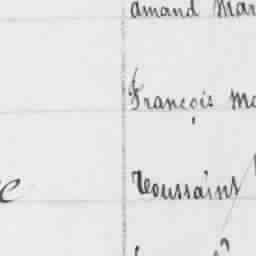 amand Mar
François Ma
Toussaint